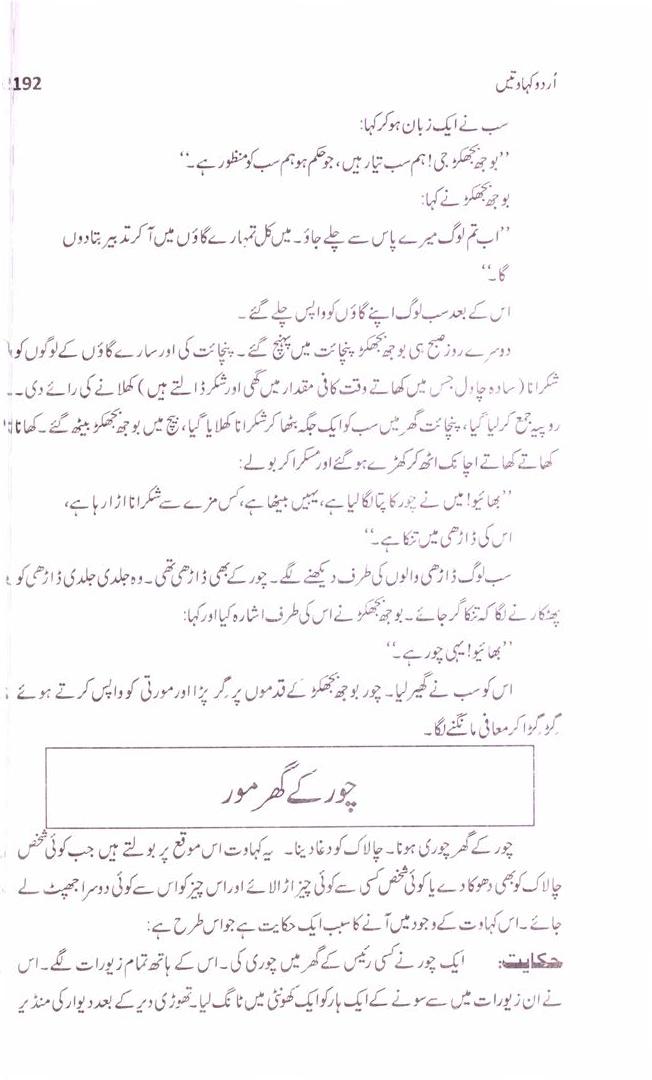 192
اُردو کہاوتیں
سب نے ایک زبان ہوکر کہا:
’’بوجھ بجھکڑ جی! ہم سب تیار ہیں، جو حکم ہو ہم سب کو منظور ہے۔‘‘
بوجھ بجھکڑ نے کہا:
’’اب تم لوگ میرے پاس سے چلے جاؤ۔ میں کل تمہارے گاؤں میں آکر تدبیر بتا دوں
گا۔‘‘
اس کے بعد سب لوگ اپنے گاؤں کو واپس چلے گئے۔
دوسرے روز صبح ہی بوجھ بجھکڑ پنچائت میں پہنچ گئے۔ پنچائت کی اور سارے گاؤں کے لوگوں کو
شکرانا (سادہ چاول جس میں کھاتے وقت کافی مقدار میں گھی اور شکر ڈالتے ہیں) کھلانے کی رائے دی۔
روپیہ جمع کرلیا گیا، پنچائت گھر میں سب کو ایک جگہ بٹھا کر شکرانا کھلایا گیا، بیچ میں بوجھ بجھکڑ بیٹھ گئے۔ کھانا
کھاتے کھاتے اچانک اٹھ کر کھڑے ہوگئے اور مسکرا کر بولے:
’’بھائیو! میں نے چور کا پتا لگا لیا ہے، یہیں بیٹھا ہے، کس مزے سے شکرانا اڑا رہا ہے،
اس کی ڈاڑھی میں تنکا ہے۔‘‘
سب لوگ ڈاڑھی والوں کی طرف دیکھنے لگے۔ چور کے بھی ڈاڑھی تھی۔ وہ جلدی جلدی ڈاڑھی کو
پھٹکارنے لگا کہ تنکا گر جائے۔ بوجھ بجھکڑ نے اس کی طرف اشارہ کیا اور کہا:
’’بھائیو! یہی چور ہے۔‘‘
اس کو سب نے گھیر لیا۔ چور بوجھ بجھکڑ کے قدموں پر گر پڑا اور مورتی کو واپس کرتے ہوئے
گِڑ گِڑا کر معافی مانگنے لگا۔
چور کے گھر مور
چور کے گھر چوری ہونا۔ چالاک کو دغا دینا۔ یہ کہاوت اس موقع پر بولتے ہیں جب کوئی شخص
چالاک کو بھی دھوکا دے یا کوئی شخص کسی سے کوئی چیز اڑا لائے اور اس چیز کو اس سے کوئی دوسرا جھپٹ لے
جائے۔ اس کہاوت کے وجود میں آنے کا سبب ایک حکایت ہے جو اس طرح ہے:
حکایت: ایک چور نے کسی رئیس کے گھر میں چوری کی۔ اس کے ہاتھ تمام زیورات لگے۔ اس
نے ان زیورات میں سے سونے کے ایک ہار کو ایک کھونٹی میں ٹانگ لیا۔ تھوڑی دیر کے بعد دیوار کی منڈیر